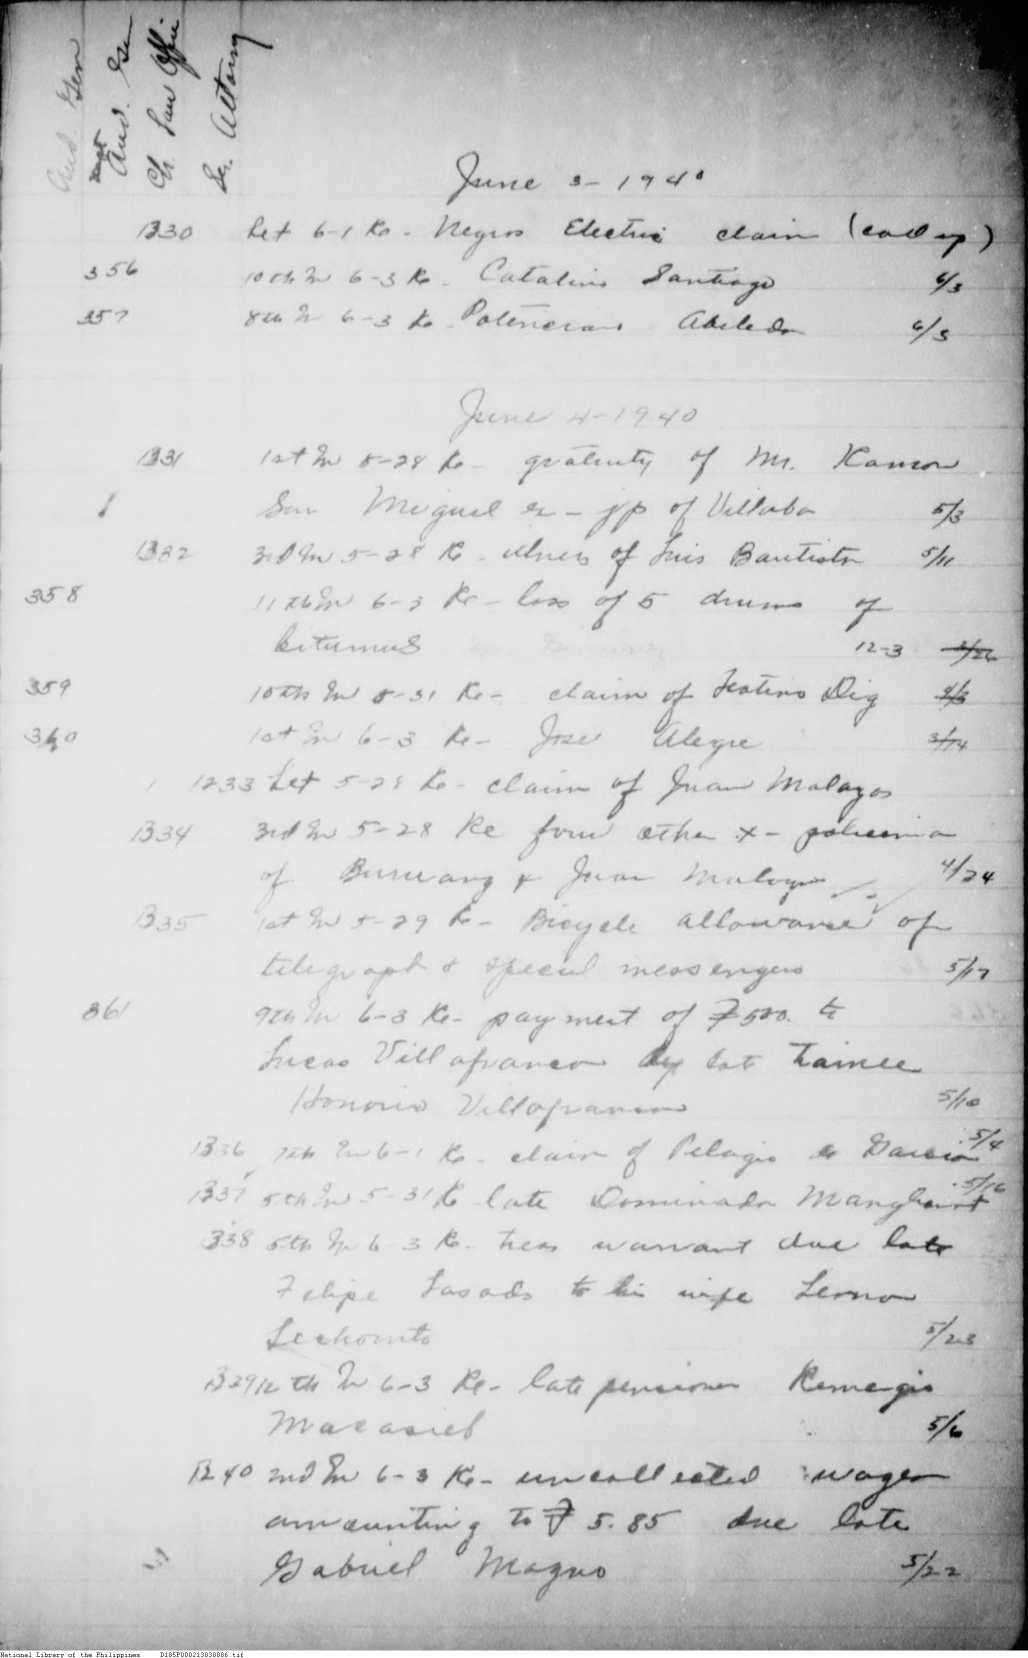 Aud. Gen
Asst Aud. Gen
Ch. Law Office
Sr. Attorney
June 3-1940
1330 Let 6-1 Re- Negros Electric claim (cod up)
356 10th In 6-3 Re- Catalino Santiago 6/3
357 8th In 6-3 Re- Potenciano Abeleda 6/3
June 4-1940
1331 1st In 5-28 Re- gratuity of Mr. Ramon
San Miguel ex-jp of Villaba 5/3
1332 3rd In 5-28 Re- illness of Luis Bautista 5/11
358 11th In 6-3 Re- loss of 5 drums of
bitumus 12-3
359 10th In 5-31 Re- claim of Dig
360 1st In 6-3 Re- Jose Alegre 3/14
1 1233 Let 5-28 Re- claim of Juan Malagos
1334 3rd In 5-28 Re four other x- policemen
of Busuang & Juan 4/24
1335 1st In 5-29 Re- Bicycle allowance of
telegraph & special messengers 5/17
361 9th In 6-3 Re- payment of ₱500. to
Lucas Villafranca by late trainee
Honorio Villafranca 5/10
1336 7th In 6-1 Re- claim of Pelagio de Garcia 5/4
1337 5th In 5-31 Re late Dominador 5/16
1338 5th In 6-3 Re- treas warrant due late
Felipe Losado to his wife Leonor
5/23
1339 12th In 6-3 Re- late pensioner Remegio
Macasieb 5/6
1240 2nd In 6-3 Re- uncollected wages
amounting to ₱ 5.85 due late
Gabriel Magno 5/22
National Library of the Philippines D185P000213838086.tif